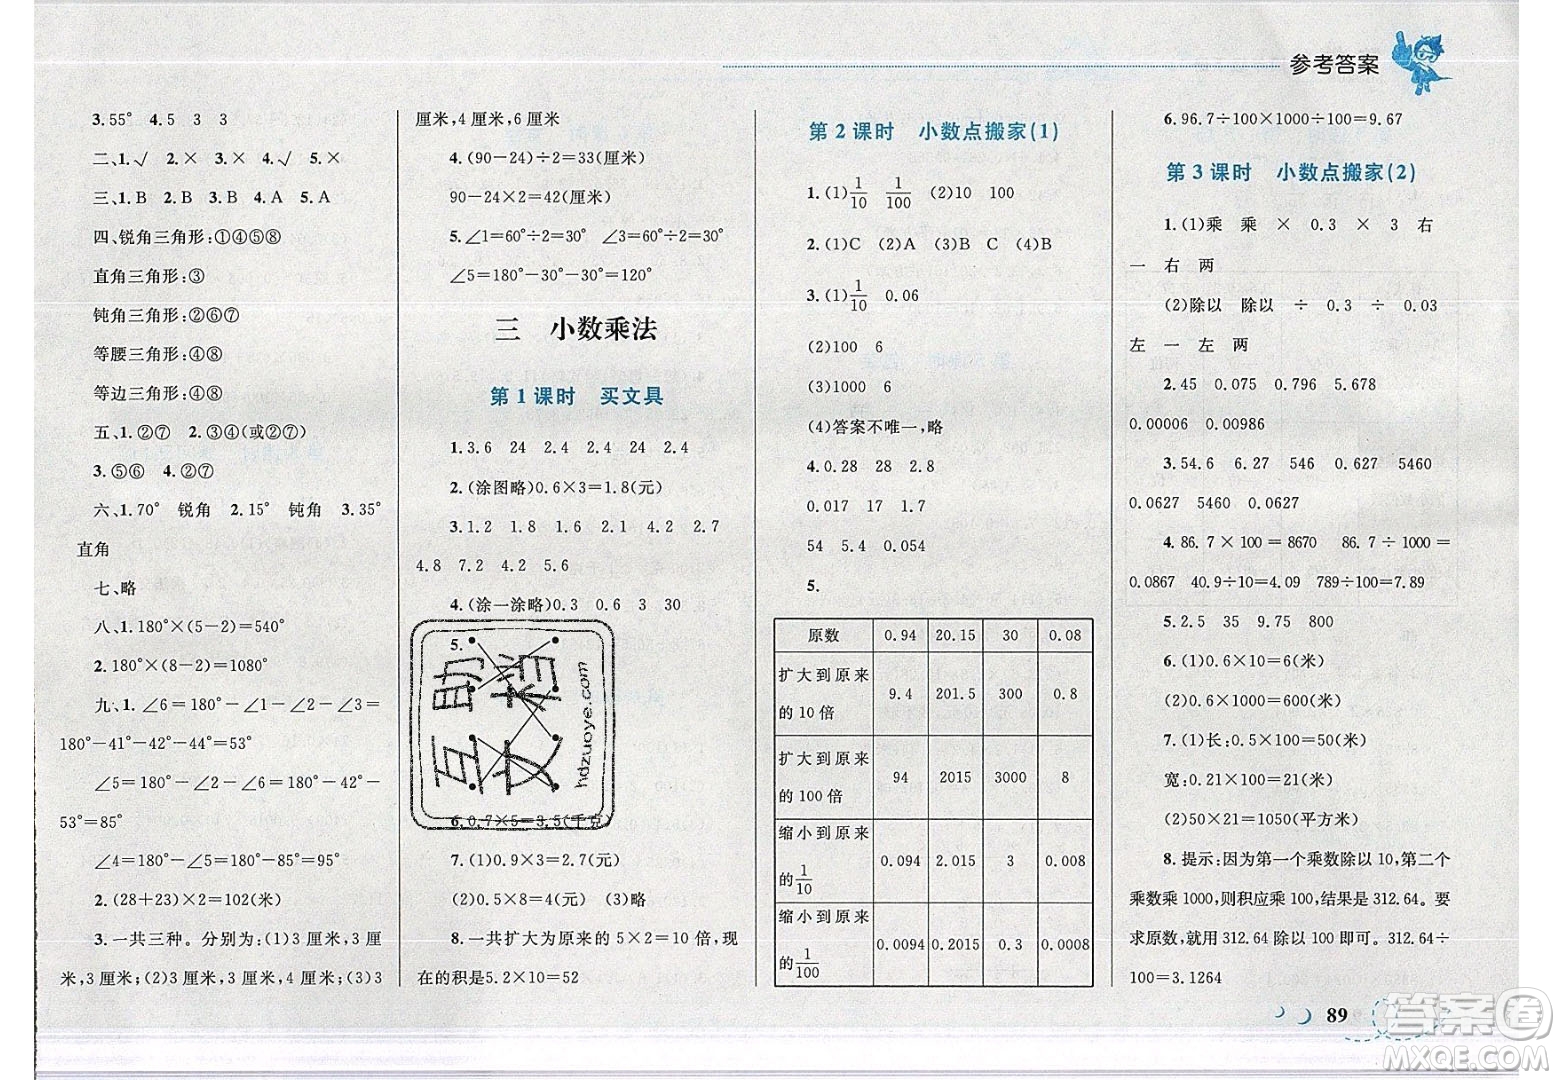 参考答案
3.55° 4.5 3 3
二、1.√ 2.× 3.× 4.√ 5.×
三、1.B 2.B 3.B 4.A 5.A
四、锐角三角形:①④⑤⑧
直角三角形:③
钝角三角形:②⑥⑦
等腰三角形:④⑧
等边三角形:④⑧
五、1.②⑦ 2.③④(或②⑦)
3.⑤⑥ 4.②⑦
六、1.70° 锐角 2.15° 钝角 3.35°
直角
七、略
八、1.180°×(5-2)=540°
2.180°×(8-2)=1080°
九、1.∠6=180°-∠1-∠2-∠3=
180°-41°-42°-44°=53°
∠5=180°-∠2-∠6=180°-42°-
53°=85°
∠4=180°-∠5=180°-85°=95°
2.(28+23)×2=102(米)
3.一共三种。分别为:(1)3厘米,3厘
米,3厘米;(2)3厘米,3厘米,4厘米;(3)3
厘米,4厘米,4厘米
4.(90-24)÷2=33(厘米)
90-24×2=42(厘米)
5.∠1=60°÷2=30° ∠2=60°÷2=30°
∠5=180°-30°-30°=120°
三 小数乘法
第1课时 买文具
1.3.6 24 2.4 24 2.4
2.(涂图略)0.6×3=1.8(元)
3.1.2 1.8 1.6 2.1 4.2 2.7
4.8 7.2 4.2 5.6
4.(涂一涂略)0.3 0.6 3 30
5.
互助文档
hdzuoye.com
6.0.7×5=3.5(千克)
7.(1)0.9×3=2.7(元)
(2)0.5×8=4(元) (3)略
8.一共扩大为原来的5×2=10倍,现
在的积是5.2×10=52
第2课时 小数点搬家(1)
1.(1)1/10 1/100 (2)10 100
2.(1)C (2)A (3)B C (4)B
3.(1)1/10 0.06
(2)100 6
(3)1000 6
(4)答案不唯一,略
4.0.28 28 2.8
0.017 17 1.7
54 5.4 0.054
5.
原数 0.94 20.15 30 0.08
扩大到原来
的10倍 9.4 201.5 300 0.8
扩大到原来
的100倍 94 2015 3000 8
缩小到原来
的1/10 0.094 2.015 3 0.008
缩小到原来
的1/100 0.0094 0.2015 0.3 0.0008
6.96.7÷100×1000÷100=9.67
第3课时 小数点搬家(2)
1.(1)乘 乘 × 0.3 × 3 右
一 右 两
(2)除以 除以 ÷ 0.3 ÷ 0.03
左 一 左 两
2.45 0.075 0.796 5.678
0.00006 0.00986
3.54.6 6.27 546 0.627 5460
0.0627 5460 0.0627
4.86.7×100=8670 86.7÷1000=
0.0867 40.9÷10=4.09 789÷100=7.89
5.2.5 35 9.75 800
6.(1)0.6×10=6(米)
(2)0.6×1000=600(米)
7.(1)长:0.5×100=50(米)
宽:0.21×100=21(米)
(2)50×21=1050(平方米)
8.提示:因为第一个乘数除以10,第二个
乘数乘1000,则积应乘100,结果是312.64。要
求原数,就用312.64除以100即可。312.64÷
100=3.1264
89
答案圈
MXQE.COM